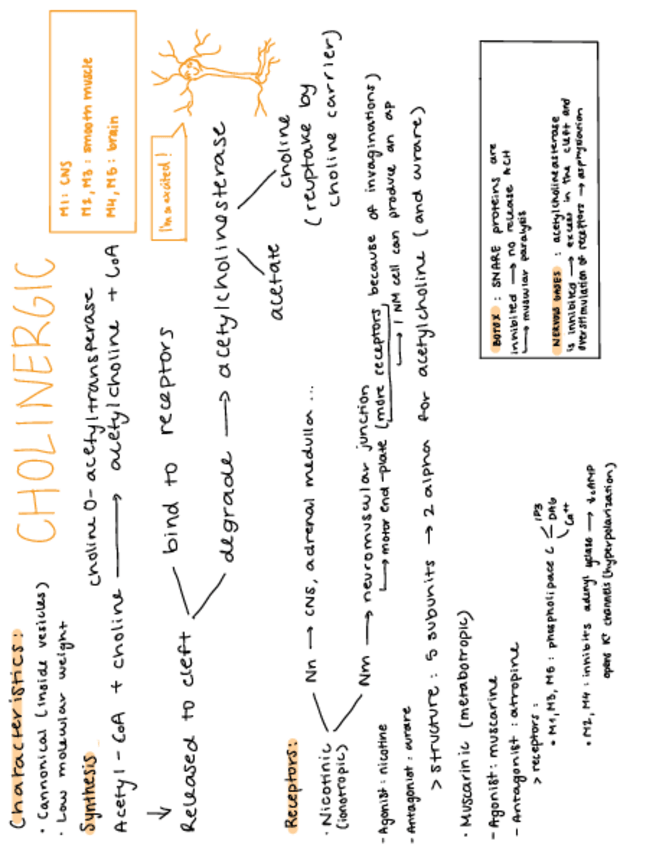 CHOLINERGIC
M1: CNS
M2, M3: smooth muscle
M4, M5: brain
I'm excited!
Characteristics:
· Cannonical (inside vesicles)
· Low molecular weight
Synthesis
choline O-acetyltransperase
Acetyl-CoA + choline → acetylcholine + CoA
↓
Released to cleft
bind to receptors
degrade → acetylcholinesterase
acetate
choline
(reuptake by
choline carrier)
Receptors:
· Nicotinic
(ionotropic)
Nn → CNS, adrenal medulla ...
Nm → neuromuscular junction
→ motor end-plate (more receptors, because of invaginations)
→ 1 NM cell can produce an ap
- Agonist: nicotine
- Antagonist: curare
> structure: 5 subunits → 2 alpha for acetylcholine (and curare)
· Muscarinic (metabotropic)
- Agonist: muscarine
- Antagonist: atropine
> receptors:
· M1, M3, M5: phospholipace C
IP3
DAG
Ca++
· M2, M4: inhibits adenyl cyclase → ↓cAMP
opens K+ channels (hyperpolarization)
BOTOX: SNARE proteins are
inhibited → no release ACH
→ muscular paralysis
NERVOUS GASES: acetylcholinesterase
is inhibited → excess in the cleft and
overstimulation of receptors → asphyxiation